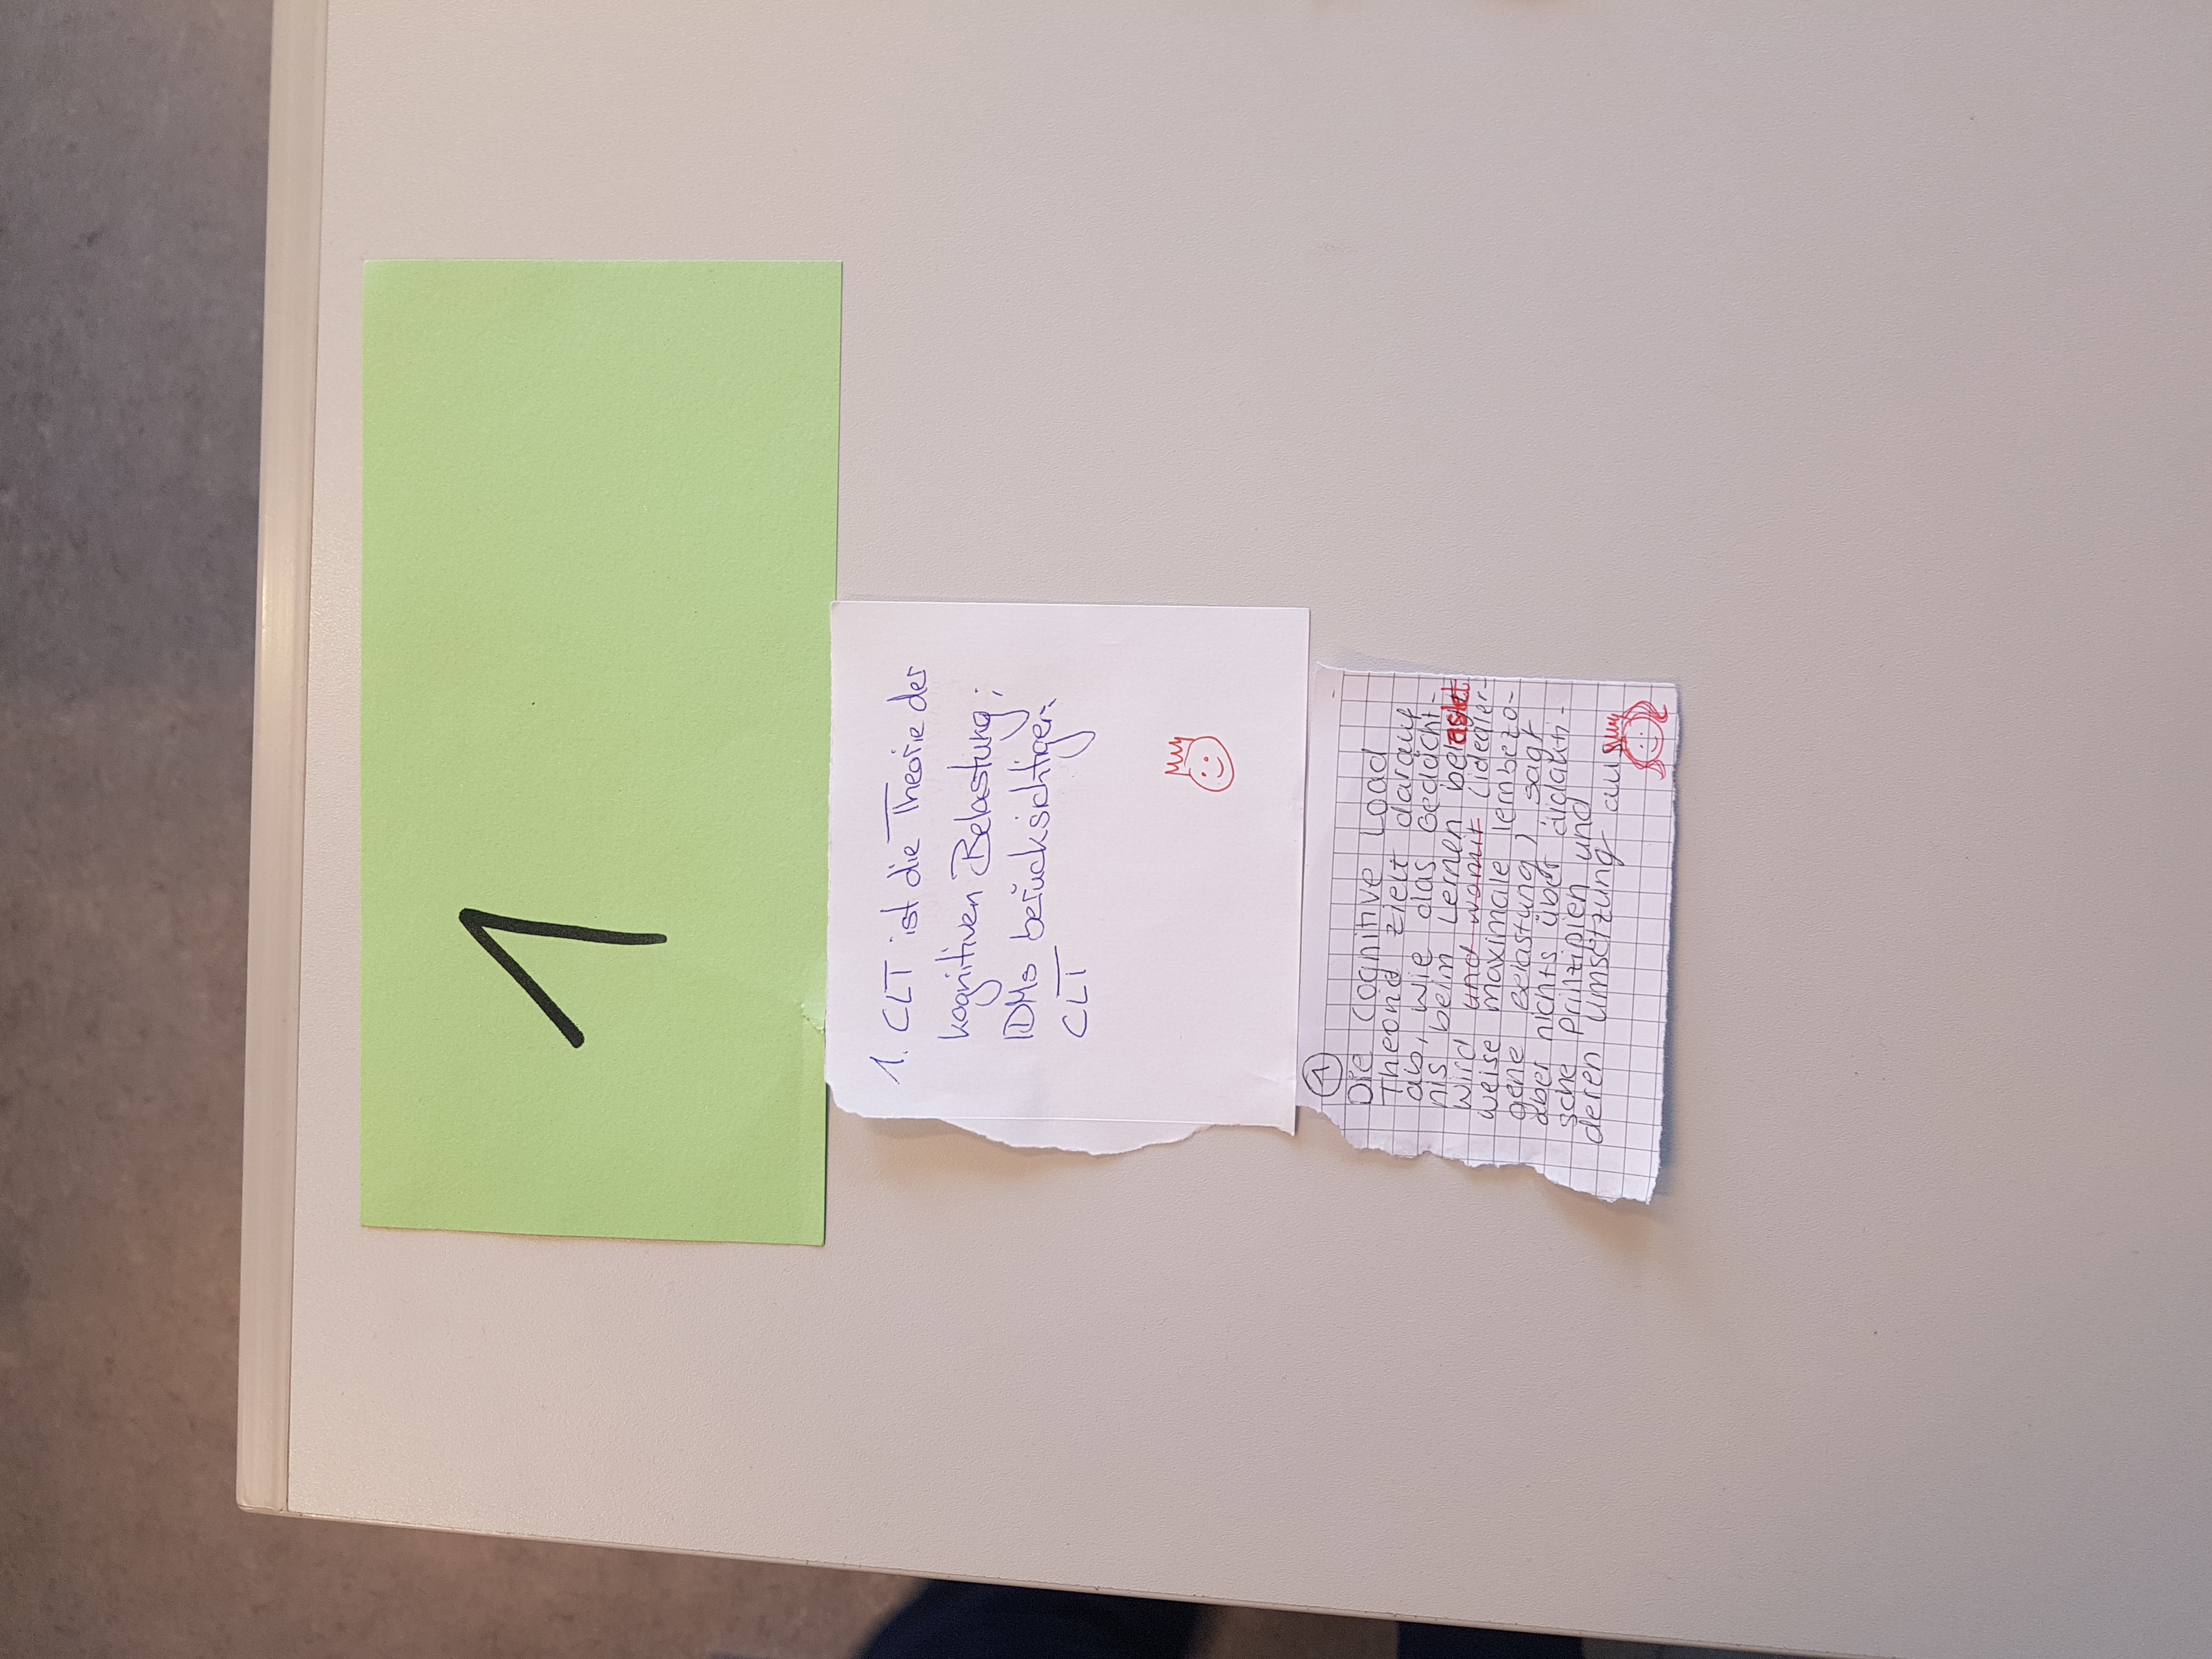 1
1. CLT ist die Theorie der
kognitiven Belastung;
IDMs berücksichtigen
CLT
1
Die Cognitive Load
Theorie zielt darauf
ab, wie das Gedächt-
nis beim Lernen belastet
wird und womit (idealer-
weise maximale lernbezo-
gene Belastung), sagt
aber nichts über didakti-
sche Prinzipien und
deren Umsetzung aus